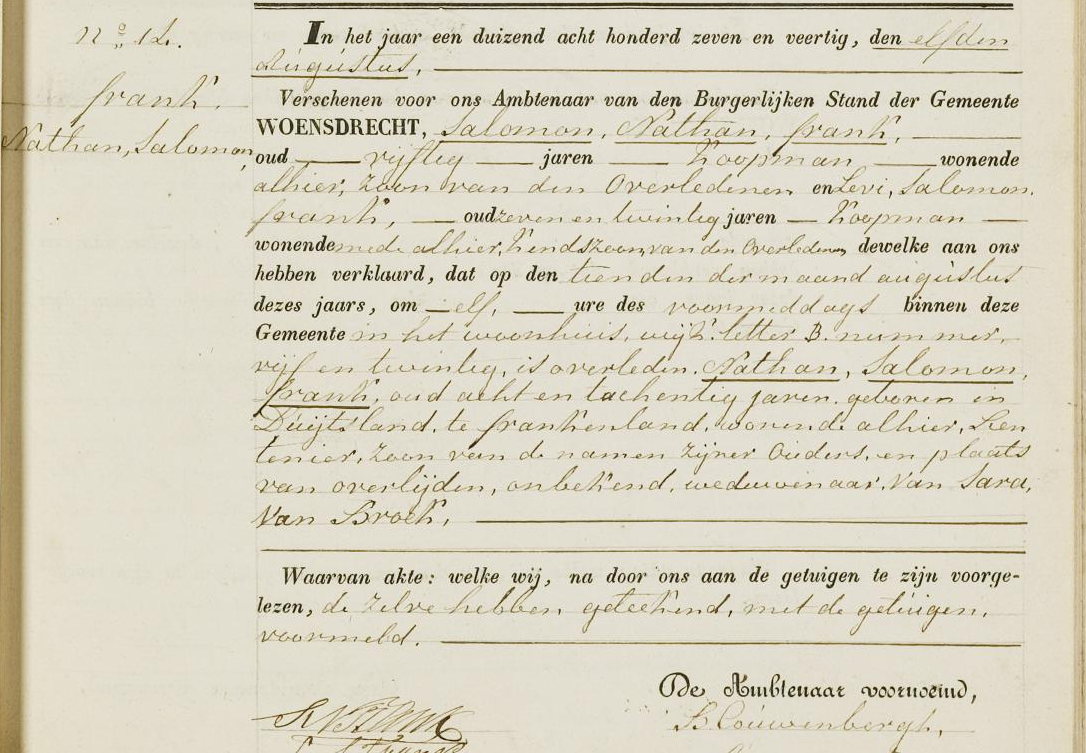 No 12.
frank.
Nathan, Salomon,
In het jaar een duizend acht honderd zeven en veertig, den elfden
Augustus,
Verschenen voor ons Ambtenaar van den Burgerlijken Stand der Gemeente
WOENSDRECHT, Salomon, Nathan, frank,
oud vijftig jaren Koopman wonende
alhier, zoon van den Overledenen en Levi, Salomon,
frank, oud zeven en twintig jaren Koopman
wonende mede alhier, kindszoon, van den Overleden, dewelke aan ons
hebben verklaard, dat op den tienden der maand augustus
dezes jaars, om elf, ure des voormiddags binnen deze
Gemeente in het woonhuis, wijk. letter B. nummer,
vijf en twintig, is overleden. Nathan, Salomon,
frank, oud acht en tachentig jaren, geboren in
Duijtsland, te frankenland, wonende alhier, Ren
tenier, zoon van de namen zijner Ouders, en plaats
van overlijden, onbekend, weduwenaar, Van Sara,
Van Broek,
Waarvan akte: welke wij, na door ons aan de getuigen te zijn voorge-
lezen, de zelve hebben geteekend, met de getuigen,
voormeld.
De Ambtenaar voornoemd,
B. Couwenbergh,